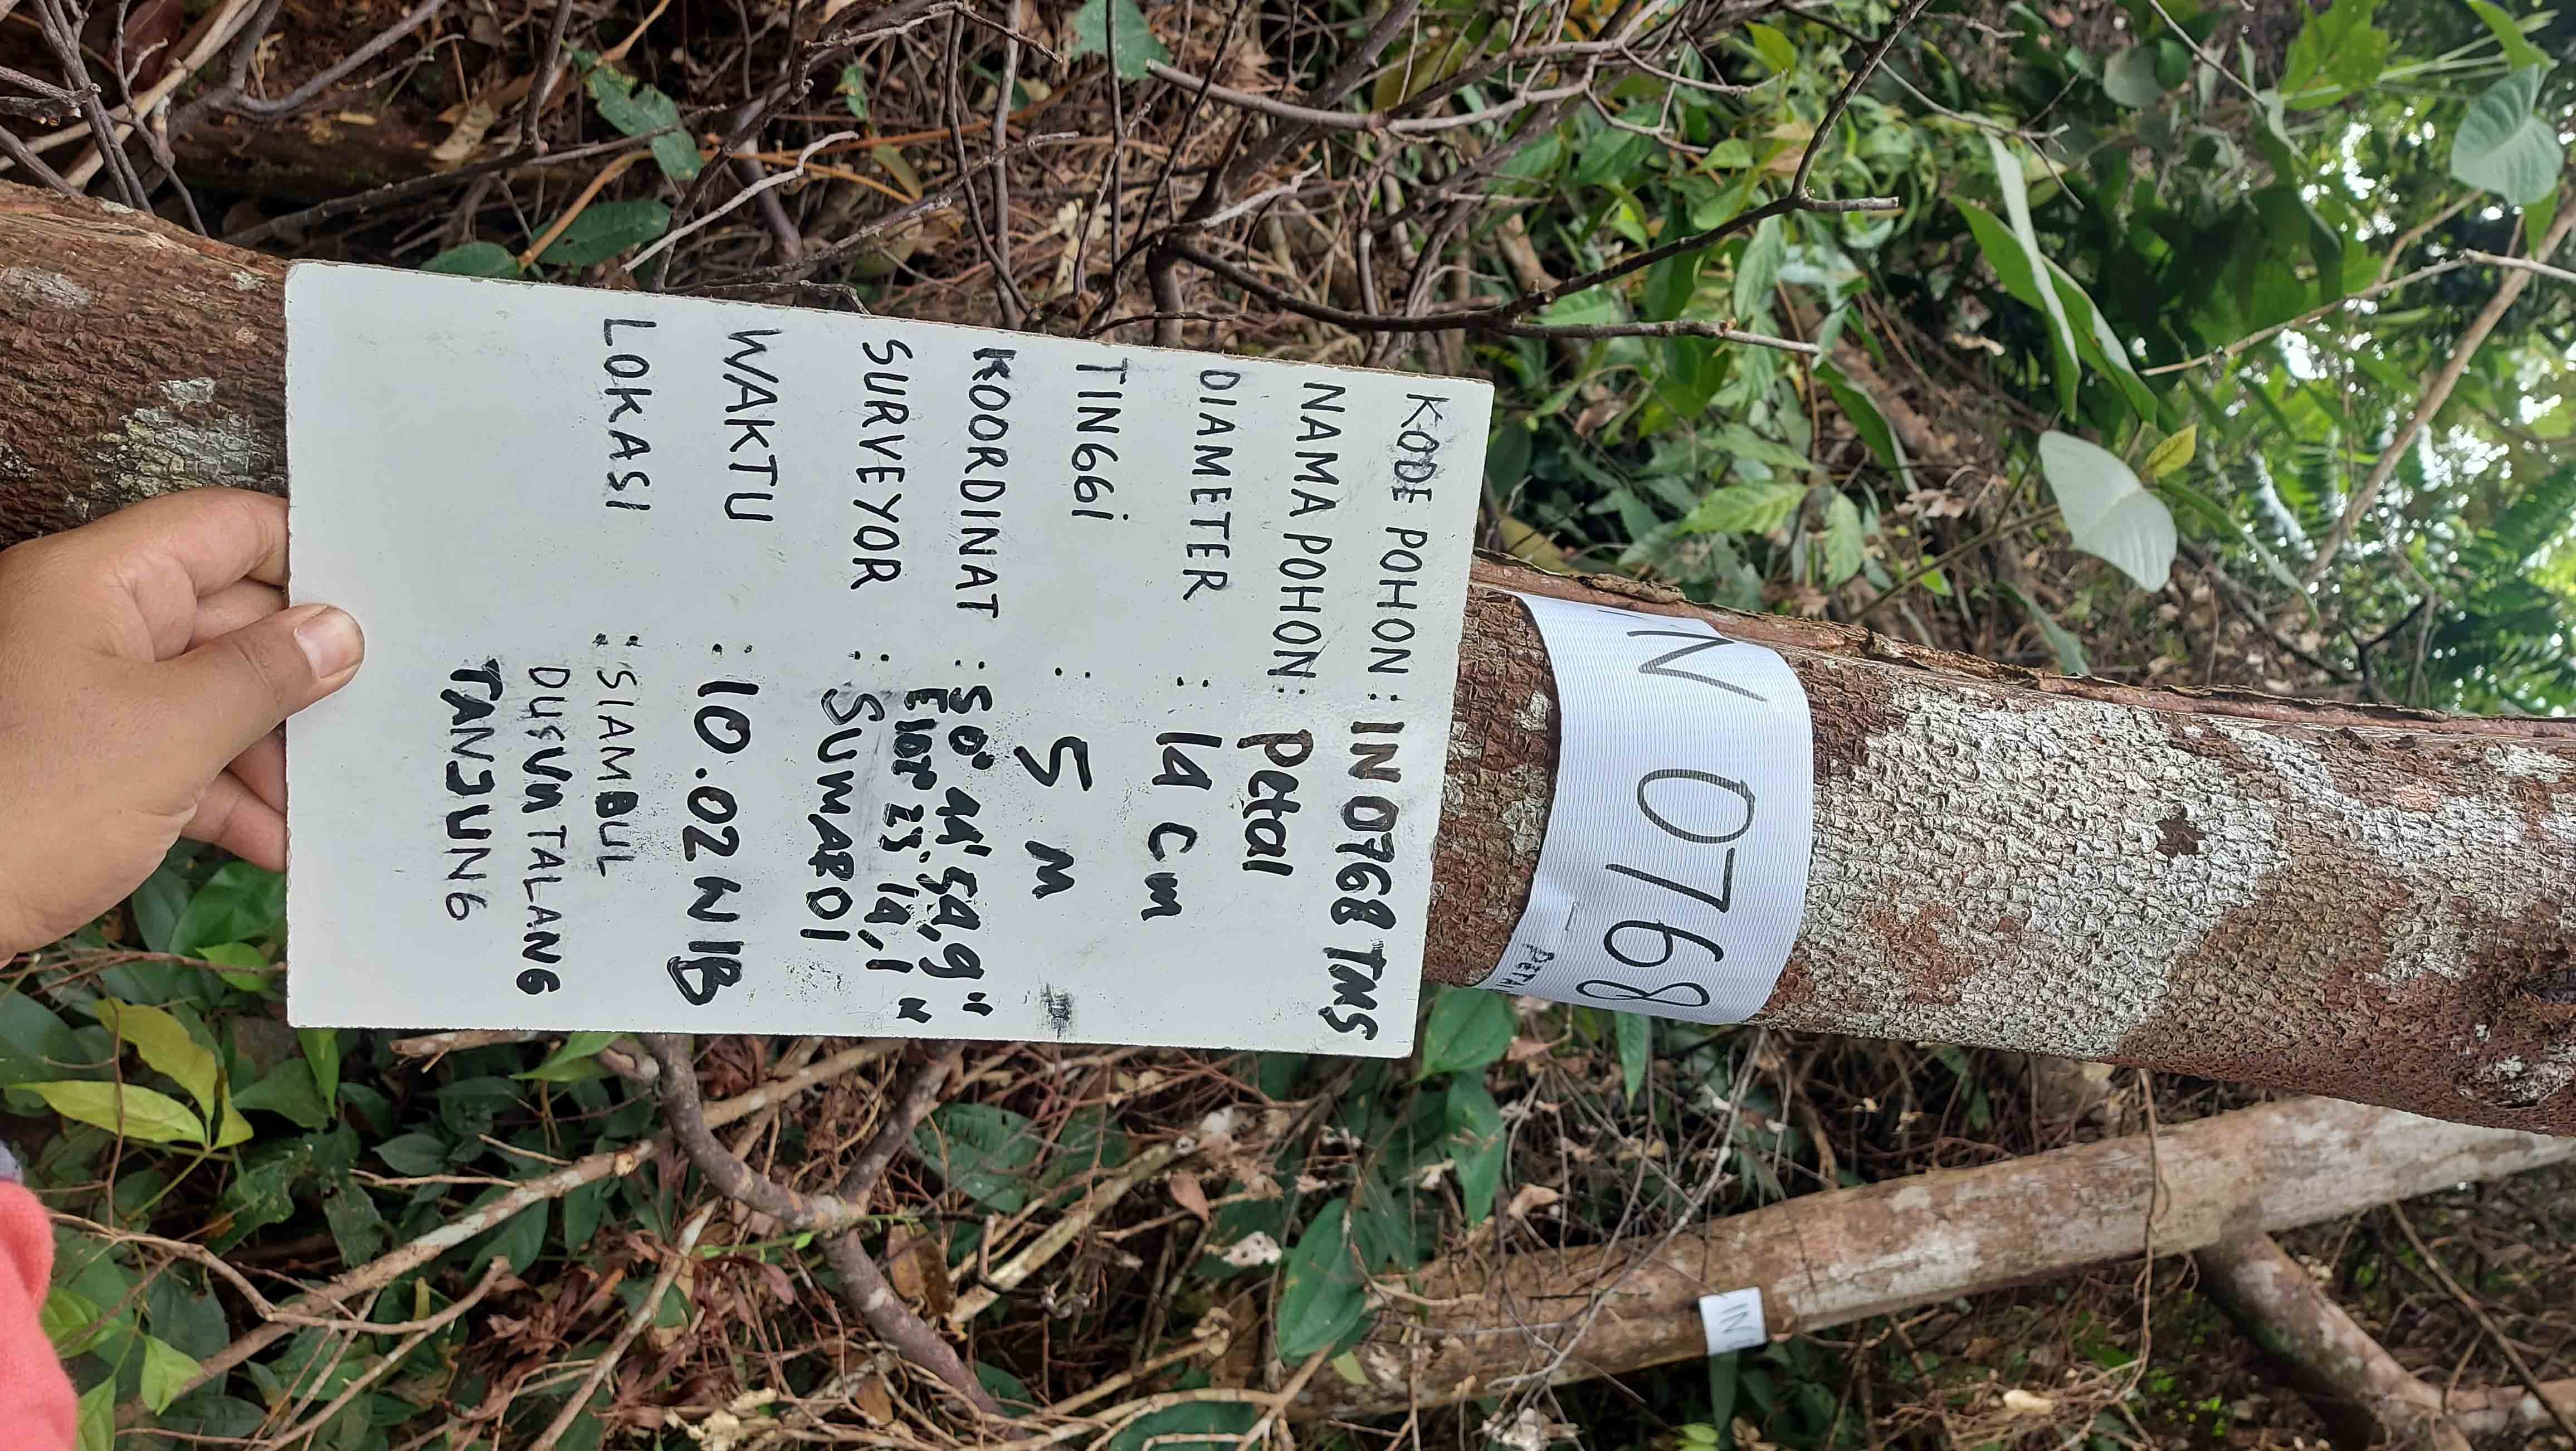 N 0768
PETAL
IN
KODE POHON : IN 0768 TMS
NAMA POHON : Petal
DIAMETER : 14 cm
TINGGi : 5 M
KOORDINAT : S 0° 44' 54,9"
E 102° 23' 14,1"
SURVEYOR : SUMARDI
WAKTU : 10.02 WIB
LOKASI : SIAMBUL
DUSUN TALANG
TANJUNG